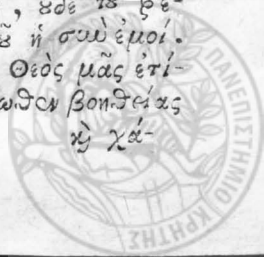 , ȣδὲ τὸ ῥε-
ῦ ἡ σὺν ἐμοί.
Θεὸς μᾶς ἐτί-
ωθεν βοηθείας
καὶ χά-
ΠΑΝΕΠΙΣΤΗΜΙΟ ΚΡΗΤΗΣ